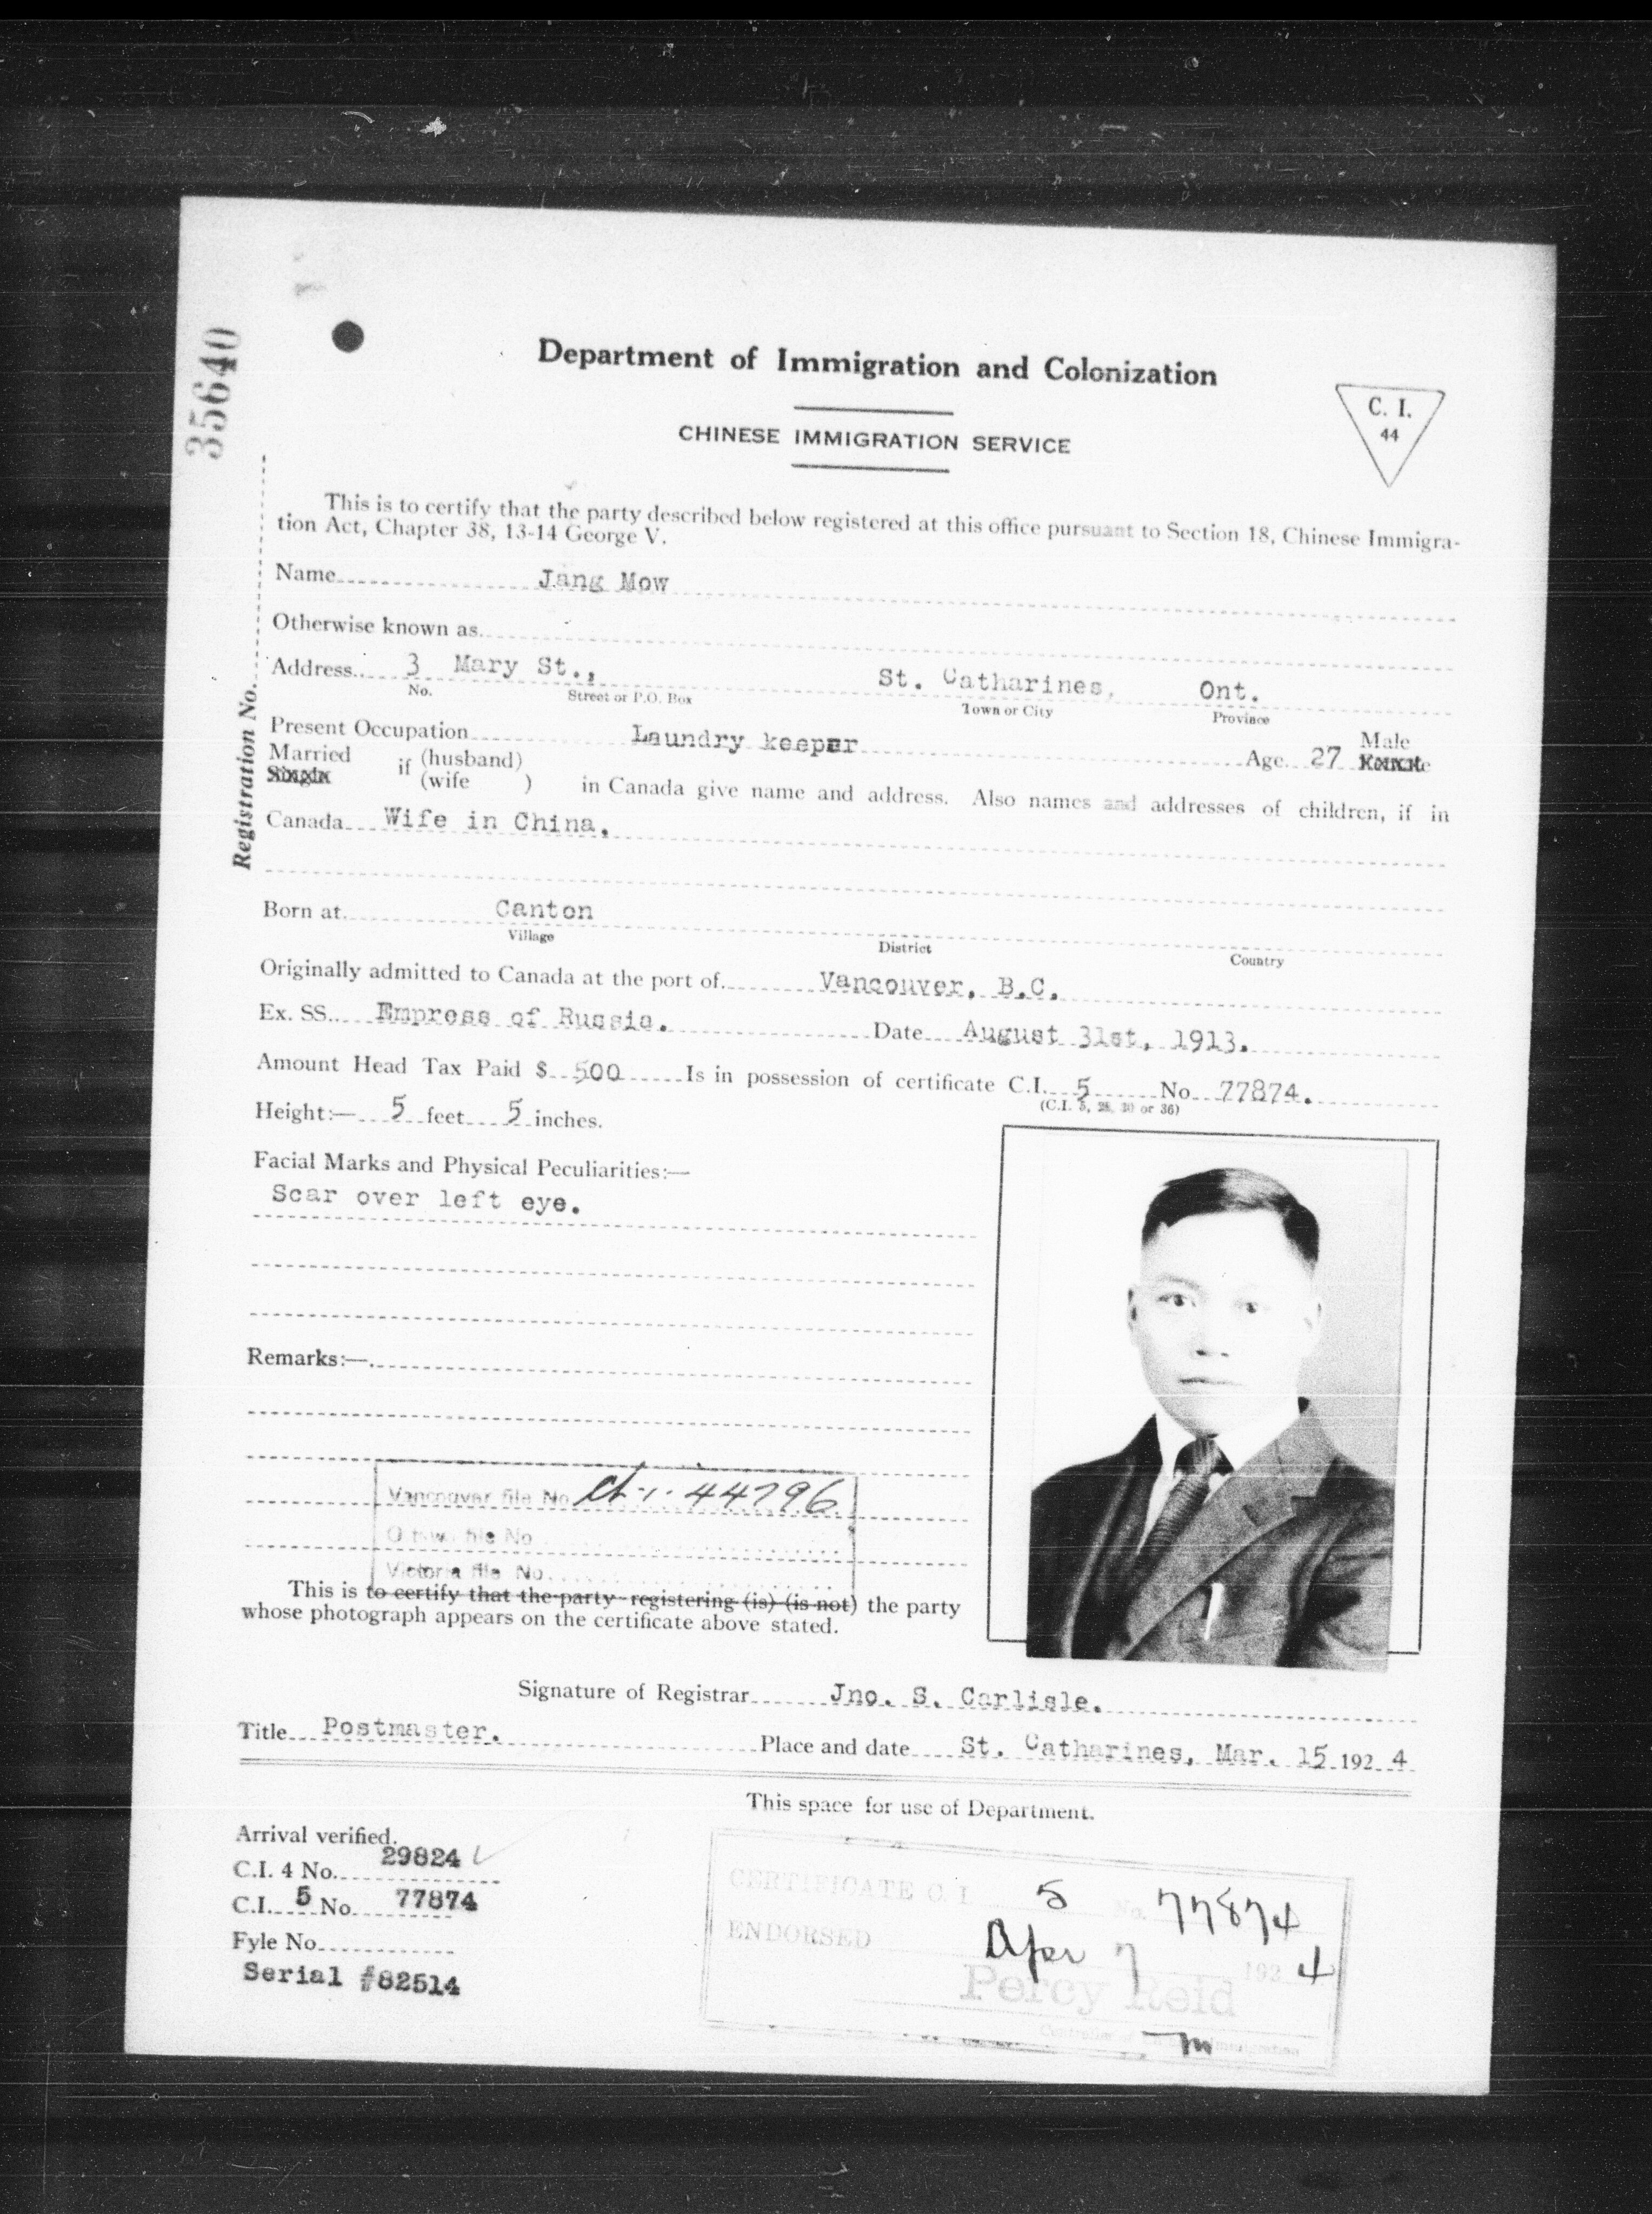 35640
Registration No.
Department of Immigration and Colonization
CHINESE IMMIGRATION SERVICE
C. I.
44
This is to certify that the party described below registered at this office pursuant to Section 18, Chinese Immigra-
tion Act, Chapter 38, 13-14 George V.
Name Jang Mow
Otherwise known as
Address 3 Mary St., St. Catharines, Ont.
No. Street or P.O. Box Town or City Province
Present Occupation Laundry keeper Age 27 Male Female
Married Single if (husband) (wife ) in Canada give name and address. Also names and addresses of children, if in
Canada Wife in China.
Born at Canton
Village District Country
Originally admitted to Canada at the port of Vancouver, B.C.
Ex. SS. Empress of Russia. Date August 31st, 1913.
Amount Head Tax Paid $ 500 Is in possession of certificate C.I. 5 No 77874.
(C.I. 5, 28, 30 or 36)
Height:— 5 feet 5 inches.
Facial Marks and Physical Peculiarities:—
Scar over left eye.
Remarks:—
Vancouver file No. 44796
Ottawa file No
Victoria file No.
This is to certify that the party registering (is) (is not) the party
whose photograph appears on the certificate above stated.
Signature of Registrar Jno. S. Carlisle.
Title Postmaster. Place and date St. Catharines, Mar. 15 192 4
This space for use of Department.
Arrival verified.
C.I. 4 No. 29824
C.I. 5 No. 77874
Fyle No.
Serial #82514
CERTIFICATE C. I. 5 No. 77874
ENDORSED Apr 7 192 4
Percy Reid
Controller of Immigration